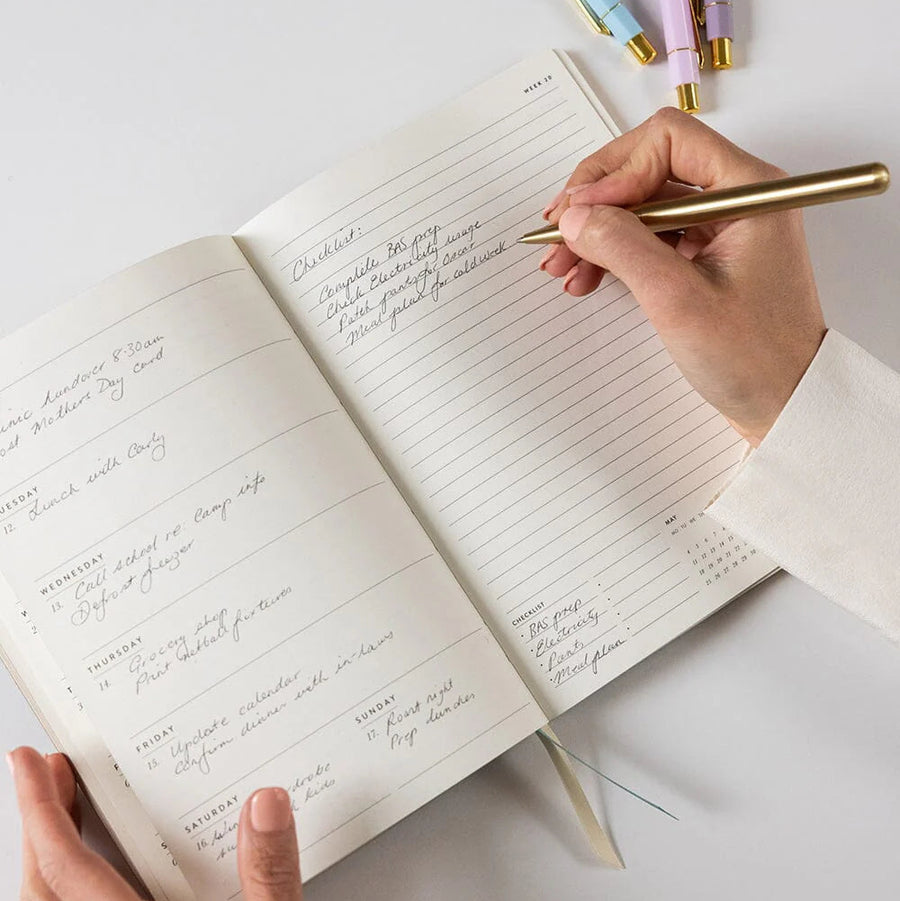 8·30am
Post Mothers Day card
TUESDAY
12. Lunch with Carly
WEDNESDAY
13. Call school re: Camp info
Defrost freezer
THURSDAY
14. Grocery shop
Print Netball fixtures
FRIDAY
15. Update calendar
Confirm dinner with in-laws
SATURDAY
16.
kids
SUNDAY
17. Roast night
Prep lunches
WEEK 20
Checklist:
Complete BAS prep
Check Electricity usage
Patch pants for Oscar
Meal plan for cold week
MAY
MO TU WE TH
4 5 6 7
11 12 13 14
18 19 20 21
25 26 27 28
CHECKLIST
· BAS prep
· Electricity
· Pants
· Meal plan